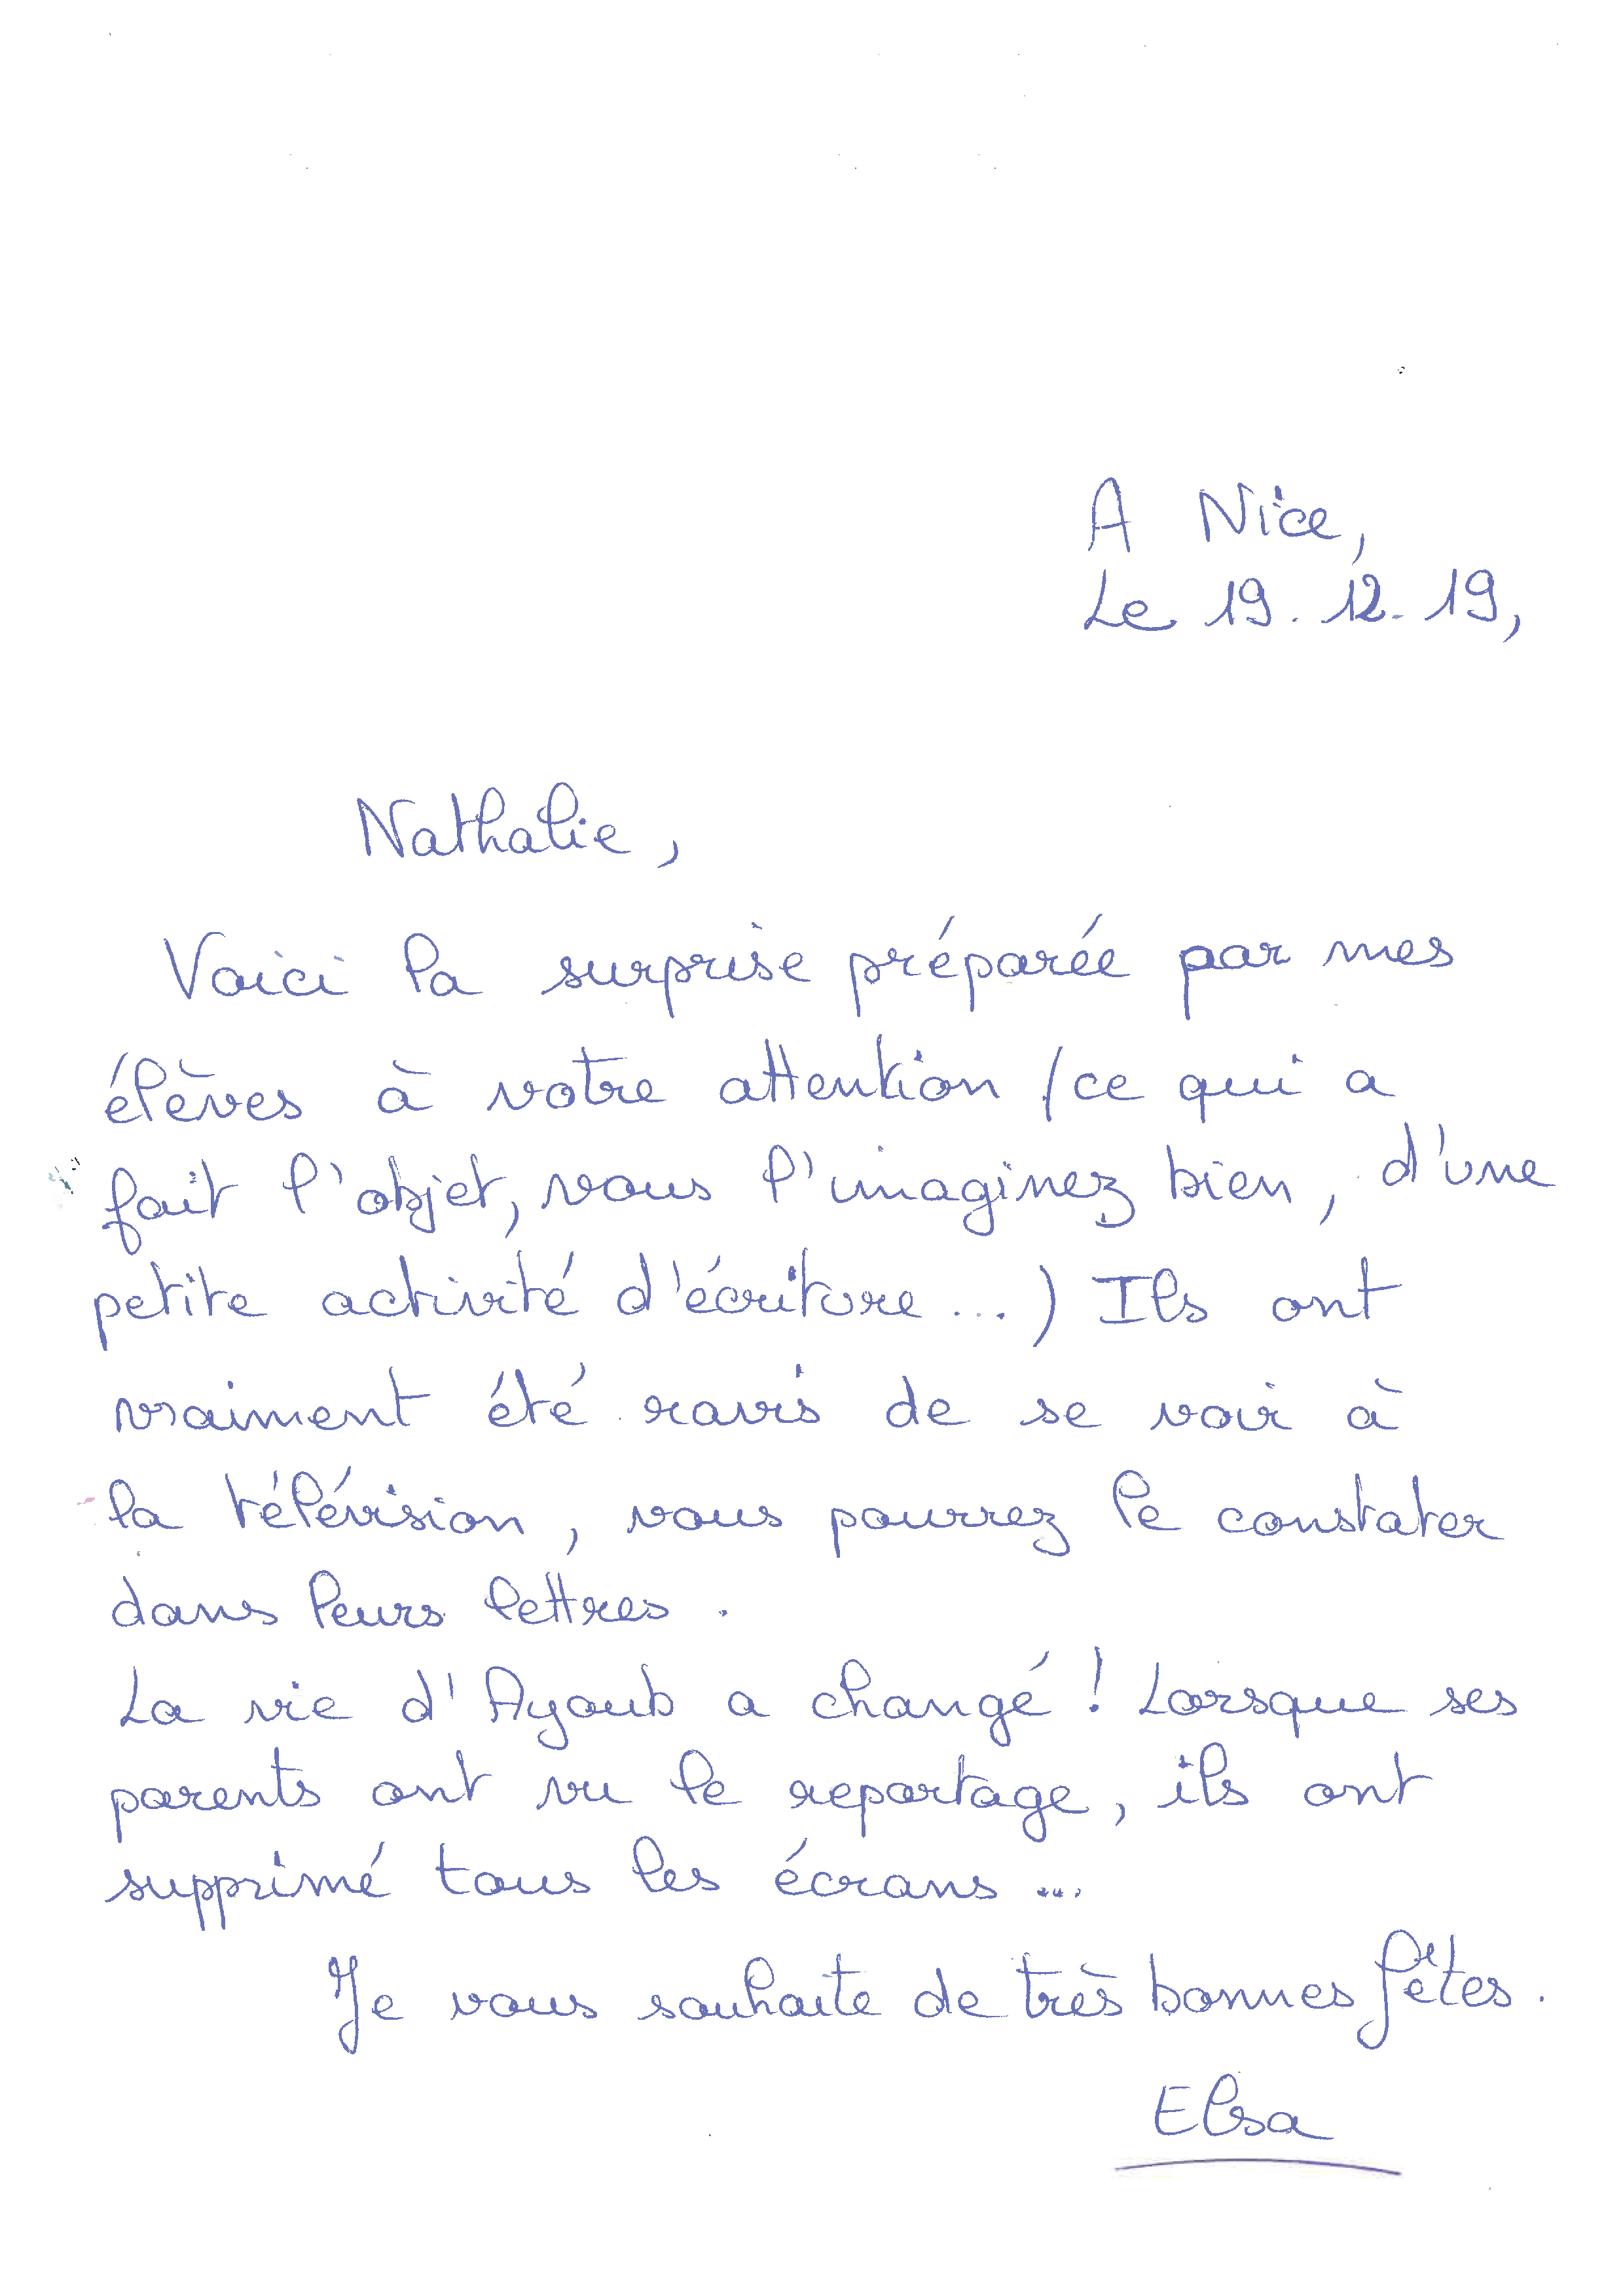 A Nice,
Le 19.12.19,
Nathalie,
Voici la surprise préparée par mes
élèves à votre attention (ce qui a
fait l'objet, vous l'imaginez bien, d'une
petite activité d'écriture...) Ils ont
vraiment été ravis de se voir à
la télévision, vous pourrez le constater
dans leurs lettres.
La vie d'Ayoub a changé ! Lorsque ses
parents ont vu le reportage, ils ont
supprimé tous les écrans...
Je vous souhaite de très bonnes fêtes.
Elsa